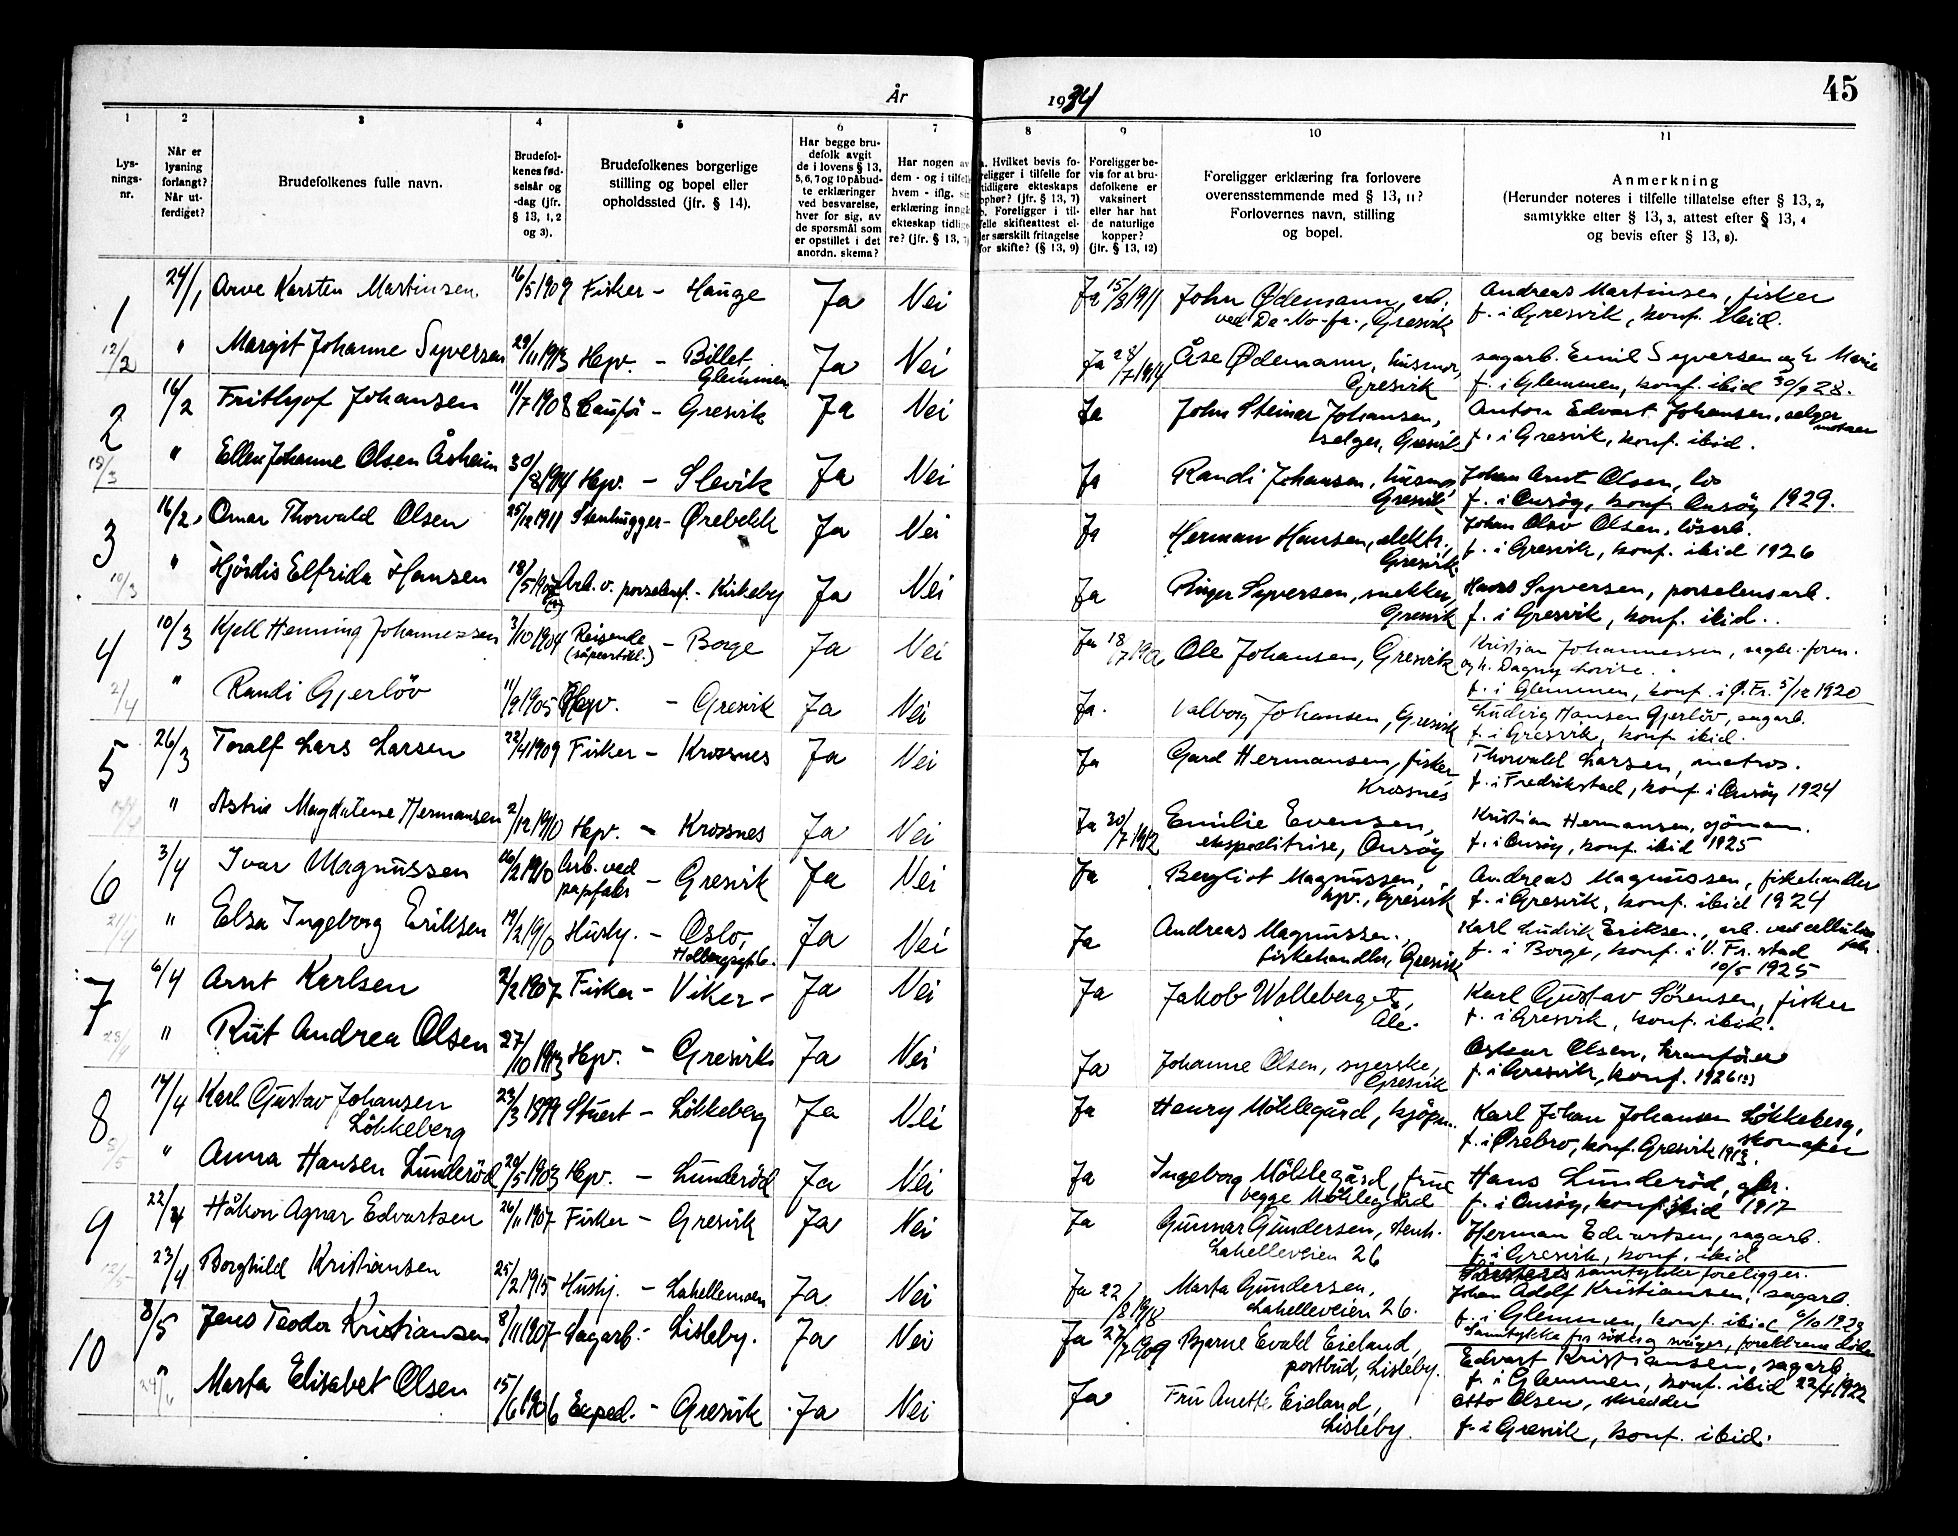 45
År 1934
1 2 3 4 5 6 7 8 9 10 11
Lysnings-nr.
Når er lysning forlangt? Når utferdiget?
Brudefolkenes fulle navn.
Brudefolkenes fødselsår og -dag (jfr. § 13, 1, 2 og 3).
Brudefolkenes borgerlige stilling og bopel eller opholdssted (jfr. § 14).
Har begge brudefolk avgit de i lovens § 13, 5, 6, 7 og 10 påbudte erklæringer ved besvarelse, hver for sig, av de spørsmål som er opstillet i det anordn. skema?
Har nogen av dem - og i tilfelle hvem - iflg. sin erklæring inngått ekteskap tidligere? (jfr. § 13, 7)
a. Hvilket bevis foreligger i tilfelle for tidligere ekteskaps ophør? (jfr. § 13, 7) b. Foreligger i tilfelle skifteattest eller særskilt fritagelse for skifte? (§ 13, 9)
Foreligger bevis for at brudefolkene er vaksinert eller har hat de naturlige kopper? (jfr. § 13, 12)
Foreligger erklæring fra forlovere overensstemmende med § 13, 11? Forlovernes navn, stilling og bopel.
Anmerkning (Herunder noteres i tilfelle tillatelse efter § 13, 2, samtykke efter § 13, 3, attest efter § 13, 4 og bevis efter § 13, 6).
1 24/1 Arve Karsten Martinsen 16/5 1909 Fisker - Hauge Ja Nei Ja 15/8 1911 John Ødemann, arb. ved Da-No-fa., Gresvik Andreas Martinsen, fisker f. i Gresvik, konf. ibid.
12/2 " Margit Johanne Syversen 29/11 1913 Hpv. - Billet, Glemmen Ja Nei Ja 28/7 1914 Åse Ødemann, husmor, Gresvik sagarb. Emil Syversen og h. Marie f. i Glemmen, konf. ibid 30/9 28.
2 16/2 Frithjof Johansen 11/7 1908 - Gresvik Ja Nei Ja John Steinar Johansen, selger, Gresvik Anton Edvart Johansen, selger f. i Gresvik, konf. ibid.
15/3 " Ellen Johanne Olsen Åsheim 30/8 1914 Hpv. - Slevik Ja Nei Ja Randi Johansen, husmor Gresvik Johan Arnt Olsen, los f. i Onsøy, konf. Onsøy 1929.
3 16/2 Omar Thorvald Olsen 25/12 1911 Stenhugger - Ørebekk Ja Nei Ja Herman Hansen, elektr., Gresvik Johan Olav Olsen, løsarb. f. i Gresvik, konf. ibid 1926
10/3 " Hjördis Elfrida Hansen 18/5 Arb. v. porselensf. - Kirkeby Ja Nei Ja Ringer Syversen, snekker, Gresvik Hans Syversen, porselensarb. f. i Gresvik, konf. ibid.
4 10/3 Kjell Henning Johannessen 3/10 1904 Reisende (såpeartikl.) - Borge Ja Nei Ja 18/7 Ole Johansen, Gresvik Kristian Johannessen, sagbr.-form. og h. Dagny Lovise. f. i Glemmen, konf. i Ø. Fr. 5/12 1920
2/4 " Randi Gjerlöv 11/9 1905 Hpv. - Gresvik Ja Nei Ja. Valborg Johansen, Gresvik Ludvig Hansen Gjerlöv, sagarb. f. i Gresvik, konf. ibid.
5 26/3 Toralf Lars Larsen 22/4 1909 Fisker - Krossnes Ja Nei Ja Gard Hermansen, fisker Krossnes Thorvald Larsen, matros. f. i Fredrikstad, konf. i Onsøy 1924
" Astrid Magdalene Hermansen 2/12 1910 Hpv. - Krossnes Ja Nei Ja 30/7 1912 Emilie Evensen, ekspeditrise, Onsøy Kristian Hermansen, sjömann. f. i Onsøy, konf. ibid 1925
6 3/4 Ivar Magnussen 26/2 1910 Arb. ved papfabr - Gresvik Ja Nei Ja Bergliot Magnussen, hpv., Gresvik Andreas Magnussen, fiskehandler f. i Gresvik, konf. ibid 1924
21/4 " Elsa Ingeborg Eriksen 19/2 1910 Hushj. - Oslo, Holbergsgt 6. Ja Nei Ja Andreas Magnussen, fiskehandler, Gresvik Karl Ludvik Eriksen, arb. ved cellulosefabr. f. i Borge, konf. i V. Fr.stad 10/5 1925
7 6/4 Arnt Karlsen 2/2 1907 Fisker - Viker - Ja Nei Ja Jakob Wolleberget, Ale. Karl Gustav Sörensen, fisker f. i Gresvik, konf. ibid.
28/4 " Rut Andrea Olsen 27/10 1913 Hpv. - Gresvik Ja Nei Ja Johanne Olsen, syerske, Gresvik Oskar Olsen, kranförer f. i Gresvik, konf. 1926
8 17/4 Karl Gustav Johansen Lökkeberg 23/3 1899 Stuert - Lökkeberg Ja Nei Ja Henry Möklegård, kjöpm. Karl Johan Johansen Lökkeberg, skomaker f. i Ørebro, konf. Gresvik 1913.
5/5 " Anna Hansen Lunderöd 20/5 1903 Hpv. - Lunderöd Ja Nei Ja Ingeborg Möklegård, frue begge Möklegård Hans Lunderöd, gbr. f. i Onsøy, konf. ibid 1917
9 22/4 Håkon Agnar Edvartsen 26/11 1907 Fisker - Gresvik Ja Nei Ja Gunnar Gundersen, stenh. Lahelleveien 26 Herman Edvartsen, sagarb. f. i Gresvik, konf. ibid
12/5 23/4 Borghild Kristiansen 25/2 1915 Hushj. - Lahellemoen Ja Nei Ja 22/8 1918 Marta Gundersen, Lahelleveien 26. samtykke foreligger. Johan Adolf Kristiansen, sagarb. f. i Glemmen, konf. ibid 6/10 1929 Samtykke fra söster og svåger, foreldrene döde
10 8/5 Jens Teodor Kristiansen 8/11 1907 Sagarb. - Lisleby. Ja Nei Ja 27/7 1909 Bjarne Evald Eieland, postbud, Lisleby. Edvart Kristiansen, sagarb f. i Glemmen, konf. ibid 22/4 1922
24/6 " Marta Elisabet Olsen 15/6 1906 Exped. - Gresvik Ja Nei Ja Fru Anette Eieland, Lisleby. Otto Olsen, skredder f. i Gresvik, konf. ibid.